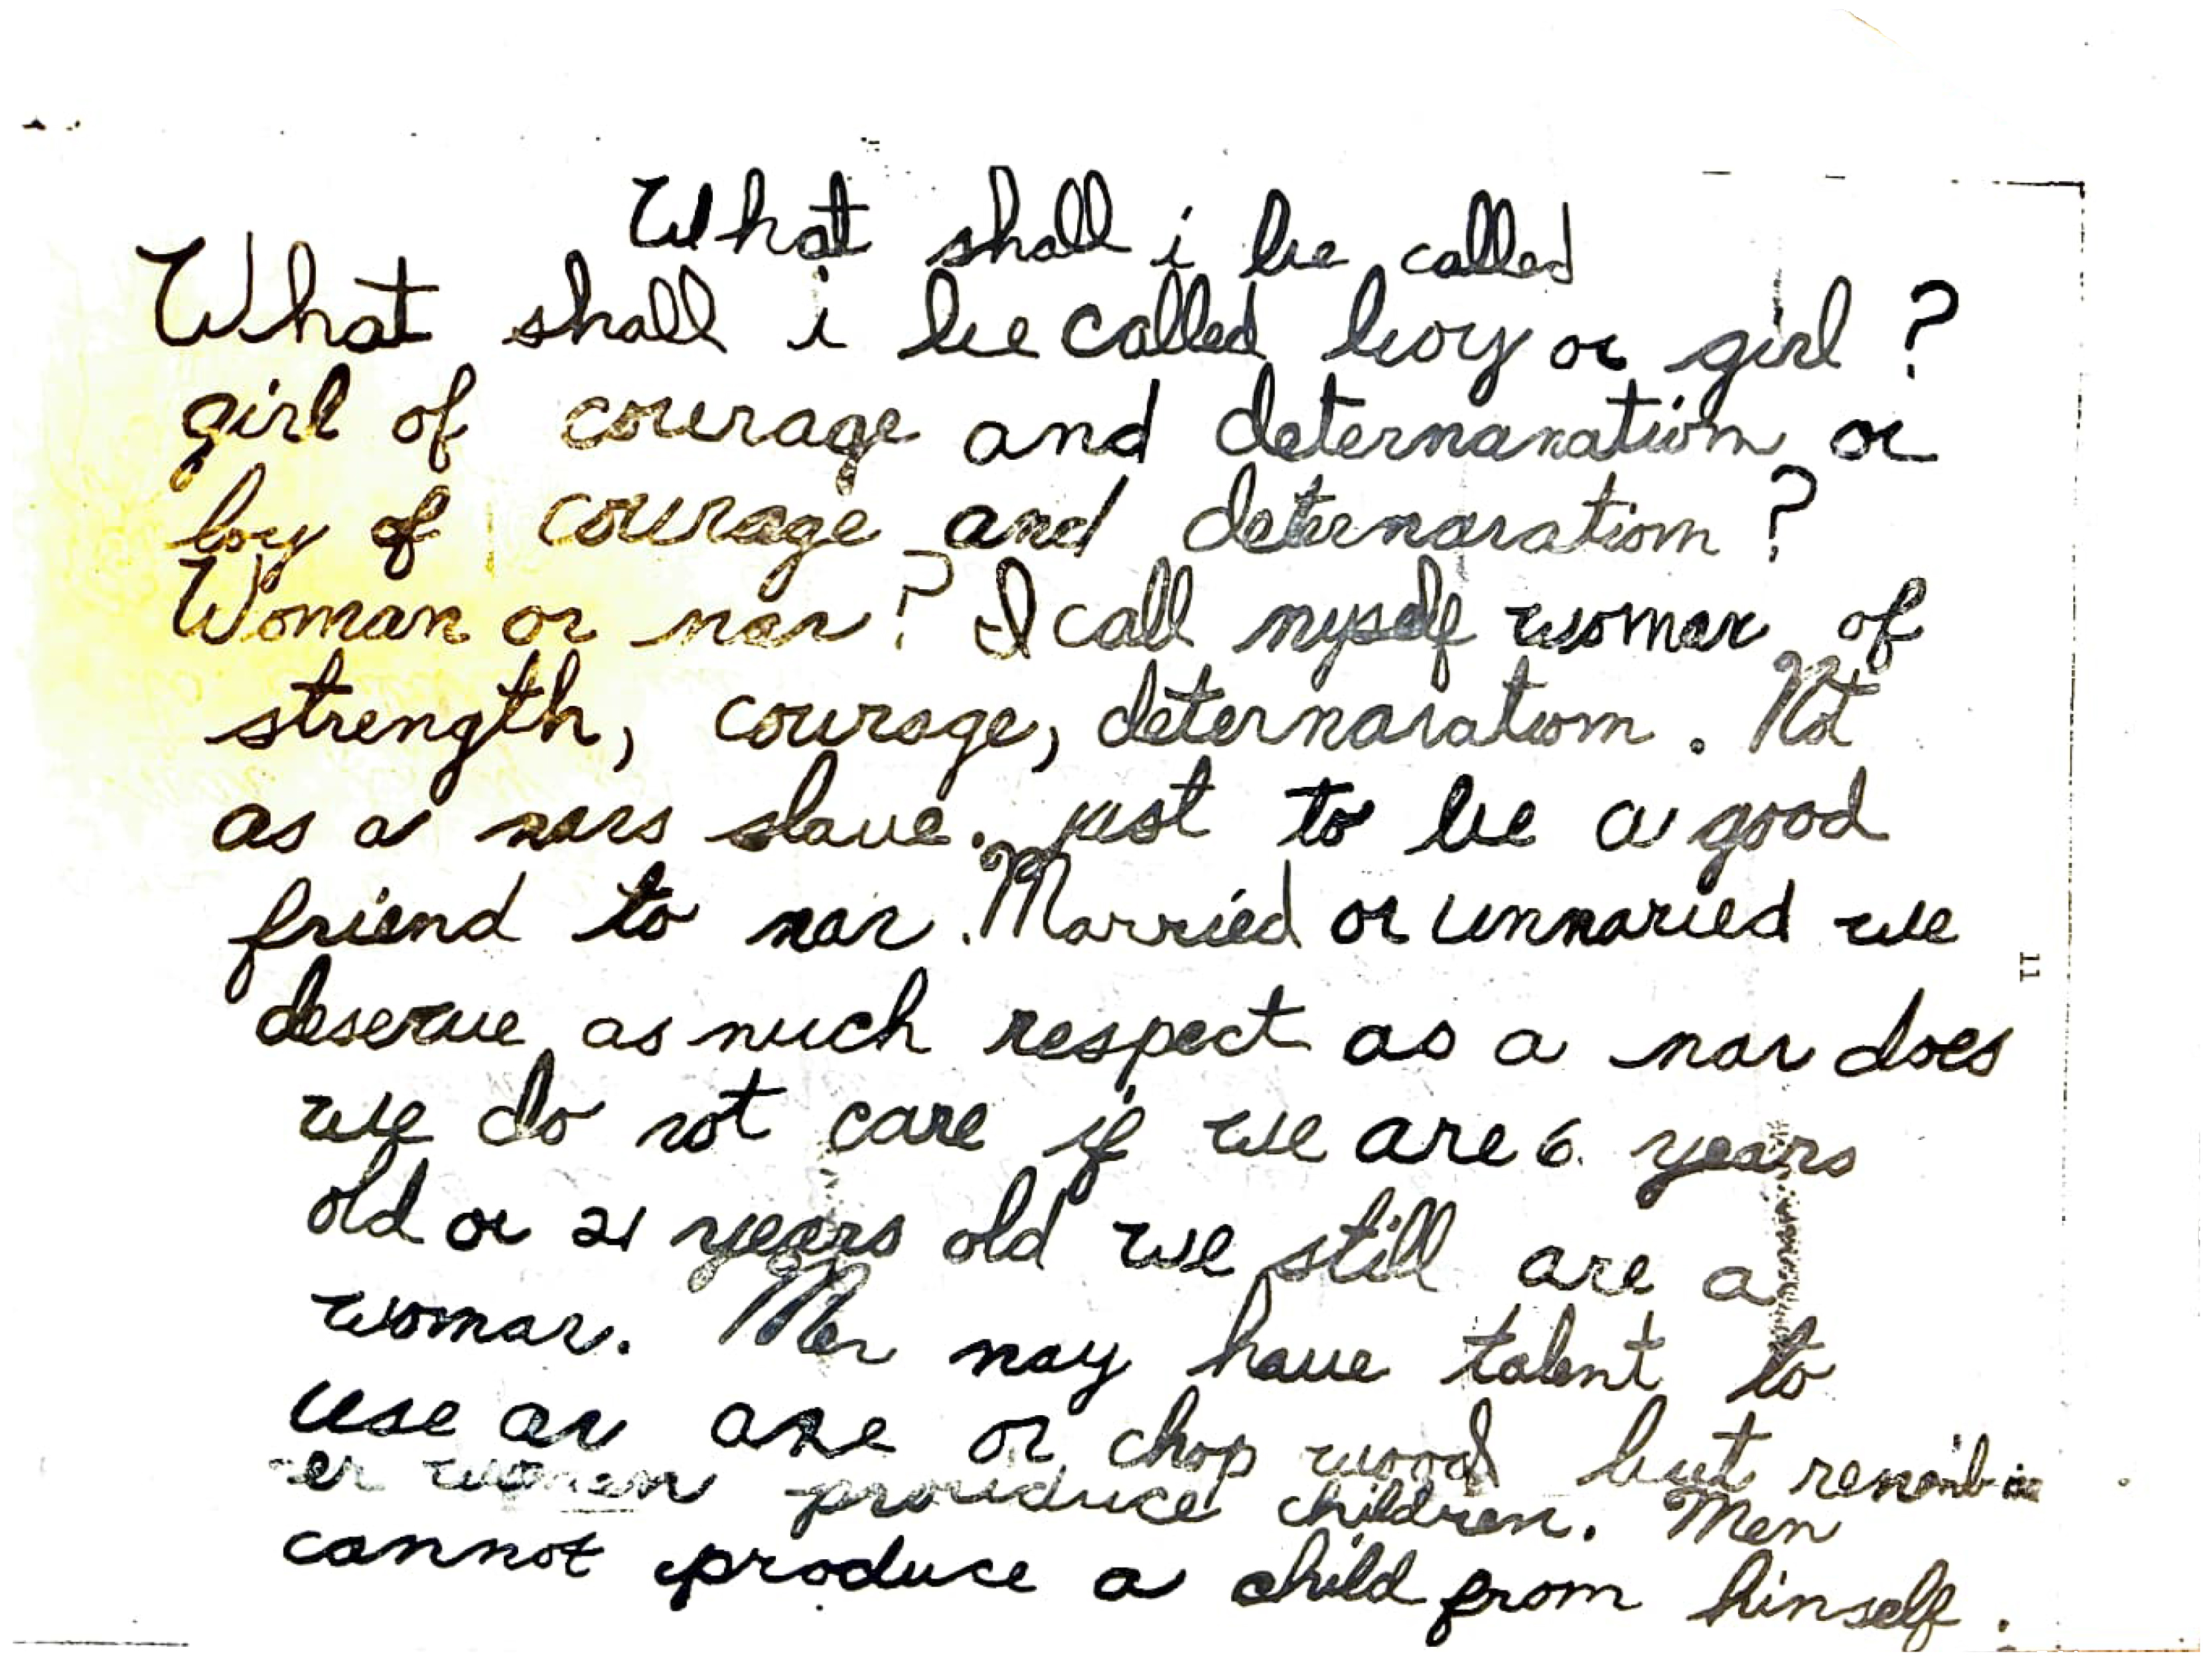 What shall i be called
What shall i be called boy or girl?
girl of courage and deternanation or
boy of courage and deternanation?
Woman or nan? I call nyself woman of
strength, courage, deternanation. Not
as a nans slave. just to be a good
friend to nan. Married or unnaried we
deserve as nuch respect as a nan does
we do not care if we are 6 years
old or 21 years old we still are a
woman. Men nay have talent to
use an axe or chop wood but renemb
er women prouduce children. Men
cannot produce a child from hinself.
11